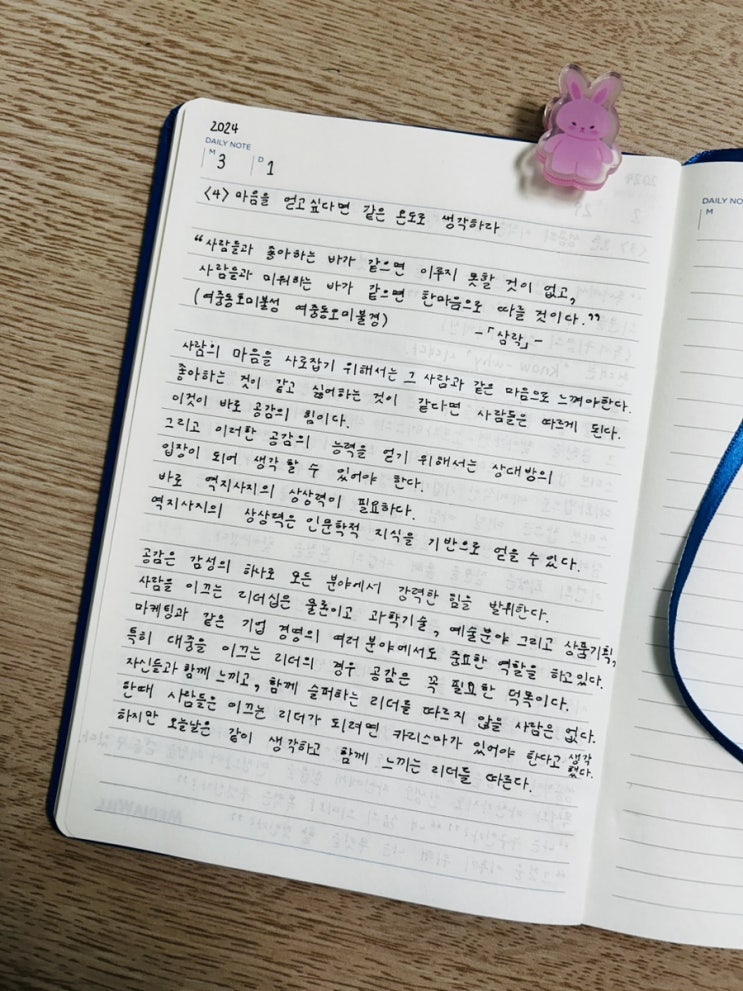 2024
DAILY NOTE
M 3 D 1
<4> 마음을 얻고 싶다면 같은 온도로 생각하라
"사람들과 좋아하는 바가 같으면 이루지 못할 것이 없고,
사람들과 미워하는 바가 같으면 한마음으로 따를 것이다."
(여중동호미불성 여중동오미불경) -「삼략」-
사람의 마음을 사로잡기 위해서는 그 사람과 같은 마음으로 느껴야한다.
좋아하는 것이 같고 싫어하는 것이 같다면 사람들은 따르게 된다.
이것이 바로 공감의 힘이다.
그리고 이러한 공감의 능력을 얻기 위해서는 상대방의
입장이 되어 생각 할 수 있어야 한다.
바로 역지사지의 상상력이 필요하다.
역지사지의 상상력은 인문학적 지식을 기반으로 얻을 수 있다.
공감은 감성의 하나로 모든 분야에서 강력한 힘을 발휘한다.
사람을 이끄는 리더십은 물론이고 과학기술, 예술분야 그리고 상품기획,
마케팅과 같은 기업 경영의 여러 분야에서도 중요한 역할을 하고있다.
특히 대중을 이끄는 리더의 경우 공감은 꼭 필요한 덕목이다.
자신들과 함께 느끼고, 함께 슬퍼하는 리더를 따르지 않을 사람은 없다.
한때 사람들은 이끄는 리더가 되려면 카리스마가 있어야 한다고 생각했다.
하지만 오늘날은 같이 생각하고 함께 느끼는 리더를 따른다.
DAILY NO
M